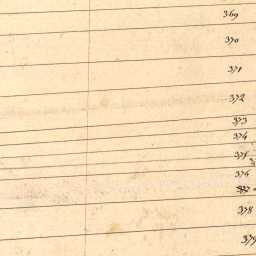 369
370
371
372
373
374
375
376
378
379